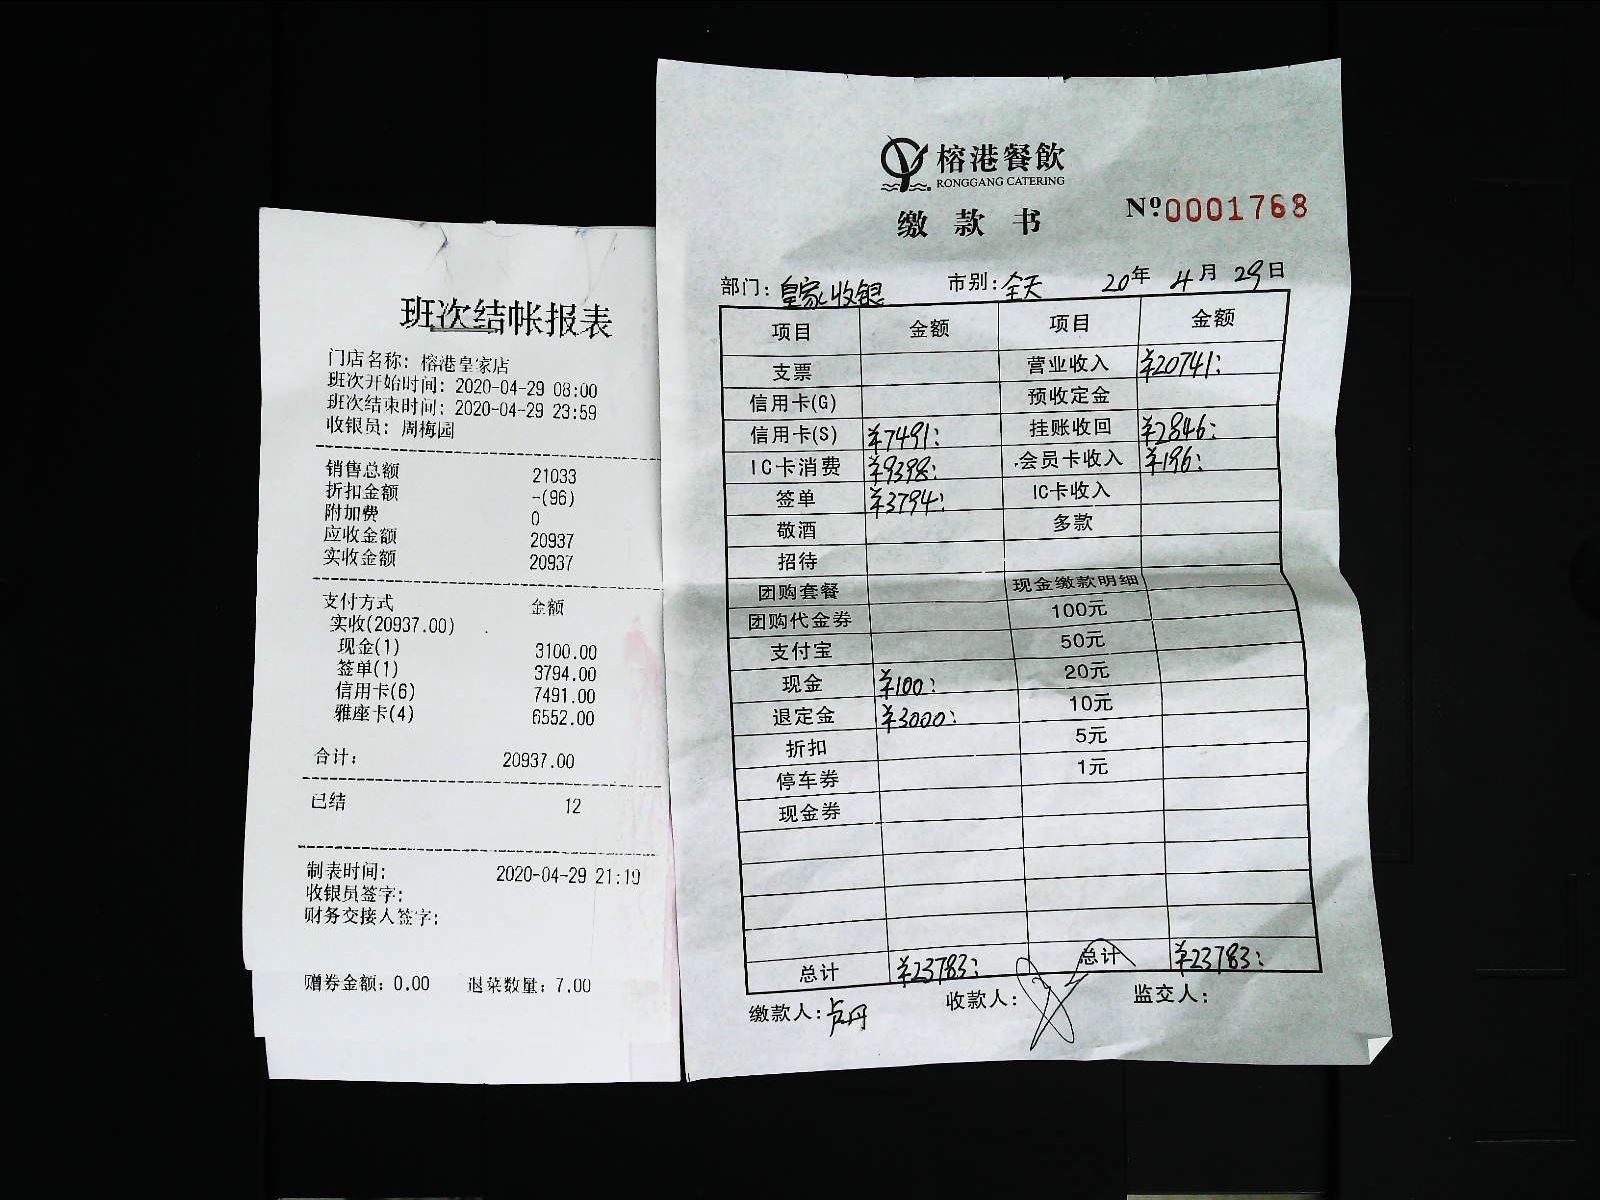 班次结帐报表
门店名称: 榕港皇家店
班次开始时间: 2020-04-29 08:00
班次结束时间: 2020-04-29 23:59
收银员: 周梅园
销售总额 21033
折扣金额 -(96)
附加费 0
应收金额 20937
实收金额 20937
支付方式 金额
实收(20937.00)
现金(1) 3100.00
签单(1) 3794.00
信用卡(6) 7491.00
雅座卡(4) 6552.00
合计: 20937.00
已结 12
制表时间: 2020-04-29 21:19
收银员签字:
财务交接人签字:
赠券金额: 0.00 退菜数量: 7.00
榕港餐飲
RONGGANG CATERING
缴款书 Nº0001768
部门: 皇家收银 市别: 全天 20年 4月 29日
项目 金额 项目 金额
支票 营业收入 ¥20741:
信用卡(G) 预收定金
信用卡(S) ¥7491: 挂账收回 ¥2846:
IC卡消费 ¥9398: 会员卡收入 ¥196:
签单 ¥3794: IC卡收入
敬酒 多款
招待
团购套餐 现金缴款明细
团购代金券 100元
支付宝 50元
现金 ¥100: 20元
退定金 ¥3000: 10元
折扣 5元
停车券 1元
现金券
总计 ¥23783: 总计 ¥23783:
缴款人: 卢丹 收款人: 监交人: